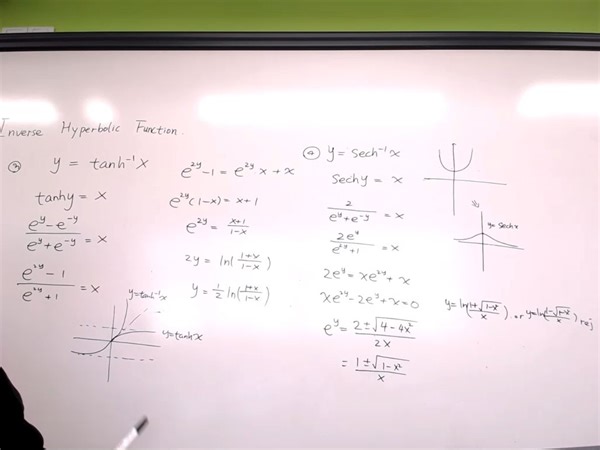 Inverse Hyperbolic Function.
y = tanh⁻¹x
tanhy = x
(e^y - e^-y)/(e^y + e^-y) = x
(e^2y - 1)/(e^2y + 1) = x
y=tanh⁻¹x
y=tanhx
e^2y - 1 = e^2y x + x
e^2y (1-x) = x+1
e^2y = (x+1)/(1-x)
2y = ln((1+x)/(1-x))
y = 1/2 ln((1+x)/(1-x))
y = sech⁻¹x
sechy = x
2/(e^y + e^-y) = x
2e^y/(e^2y + 1) = x
2e^y = xe^2y + x
xe^2y - 2e^y + x = 0
e^y = (2 ± √(4 - 4x²))/2x
= (1 ± √(1 - x²))/x
y = sechx
y = ln((1+√(1-x²))/x) or y = ln((1-√(1-x²))/x) rej